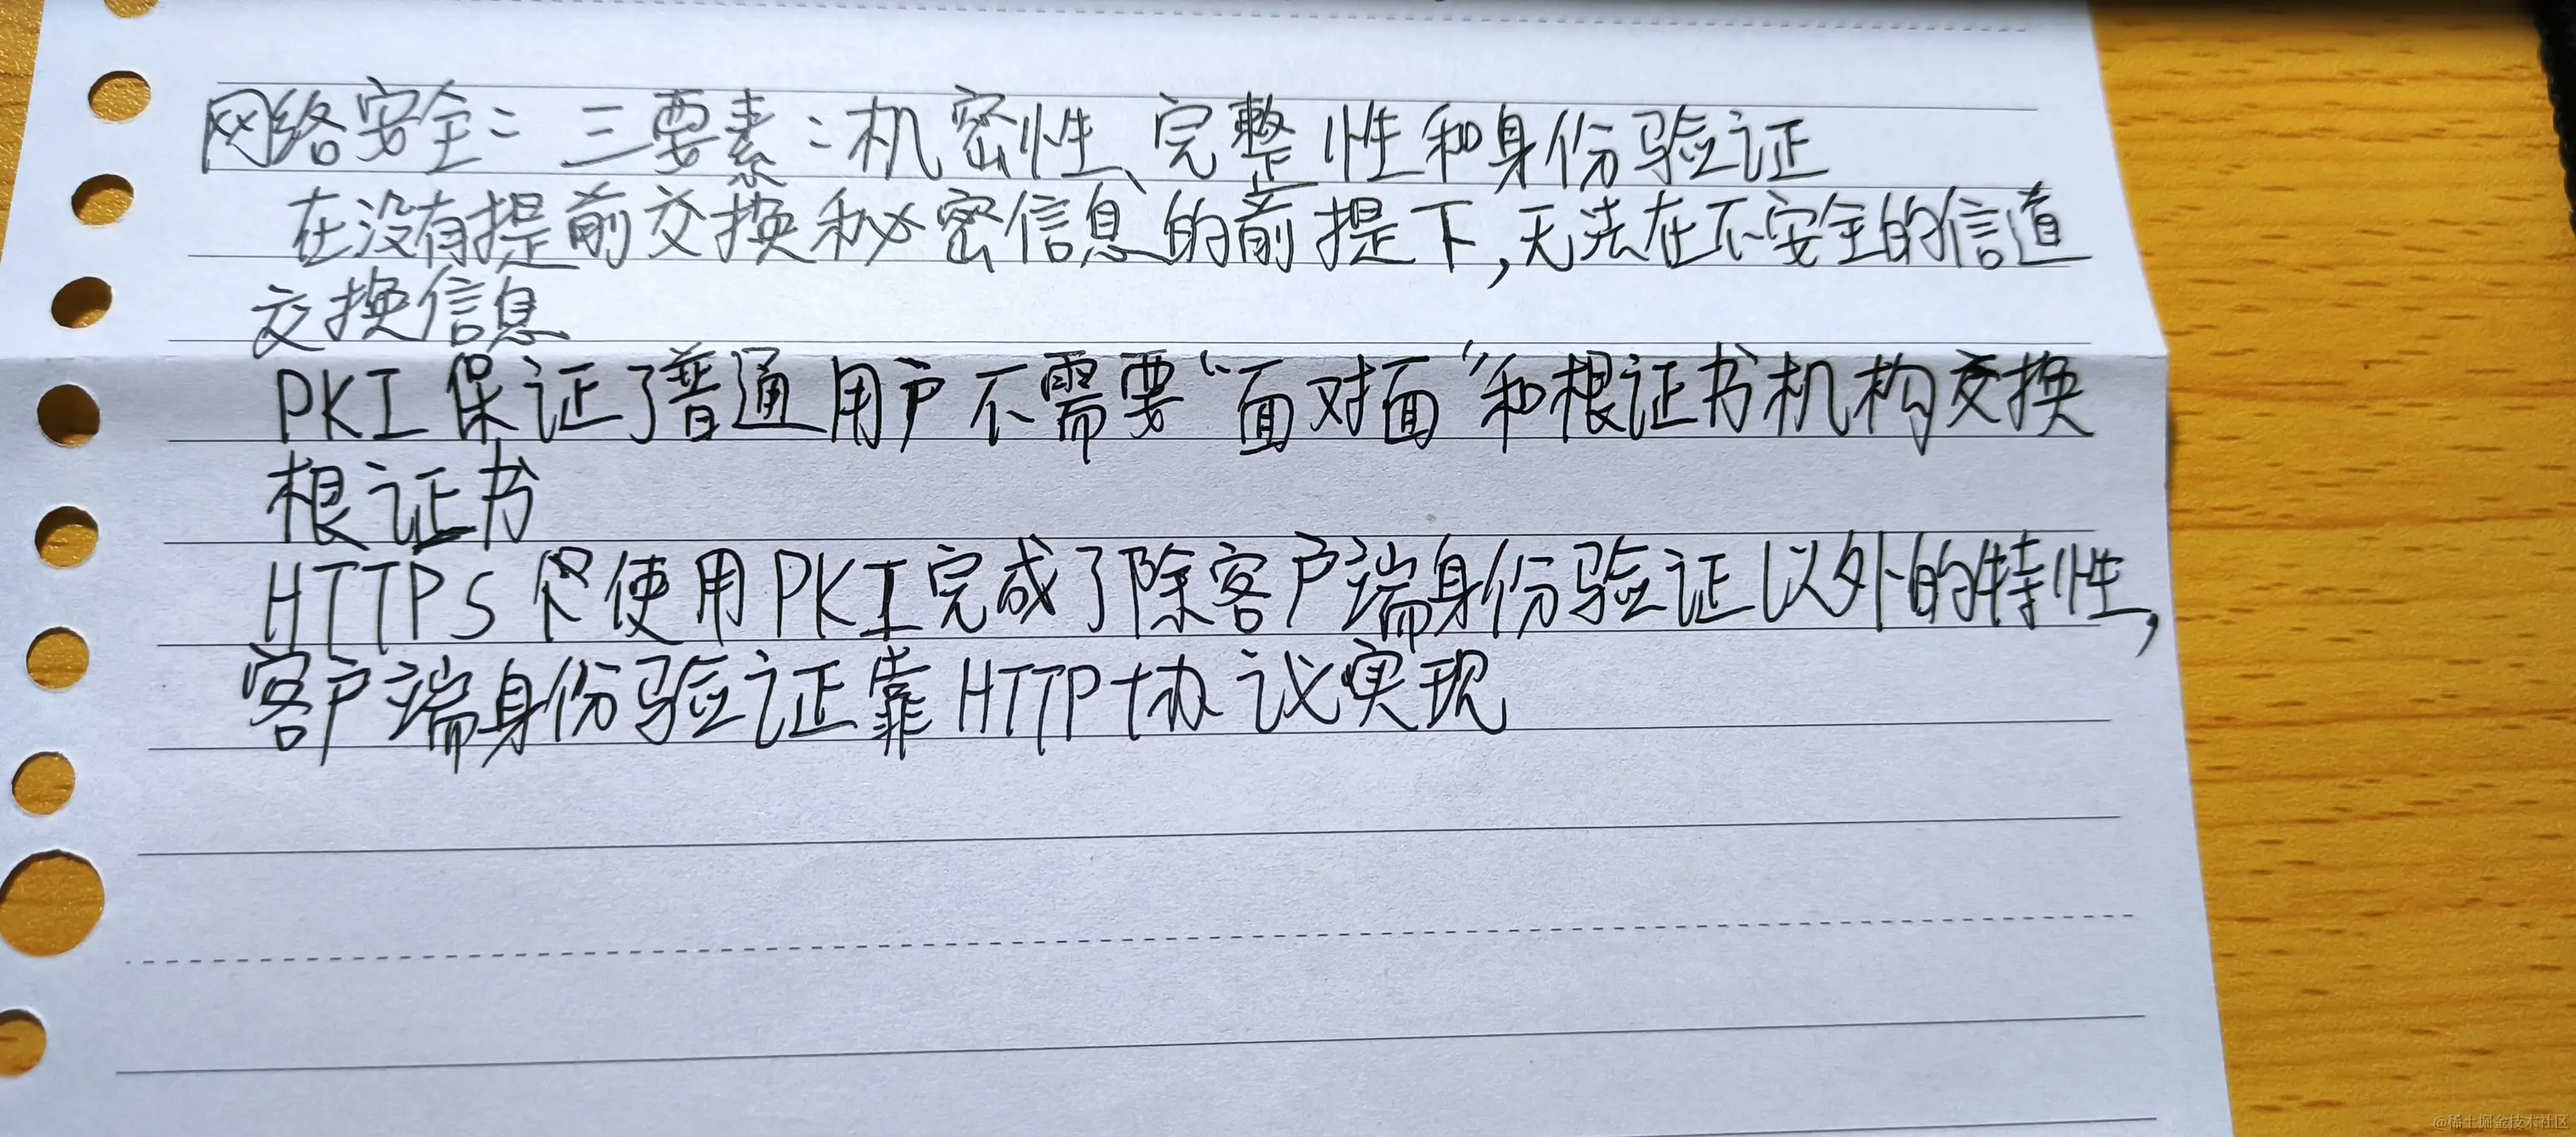 网络安全：三要素：机密性、完整性和身份验证
在没有提前交换秘密信息的前提下，无法在不安全的信道
交换信息
PKI保证了普通用户不需要“面对面”和根证书机构交换
根证书
HTTPS仅使用PKI完成了除客户端身份验证以外的特性，
客户端身份验证靠HTTP协议实现
@稀土掘金技术社区